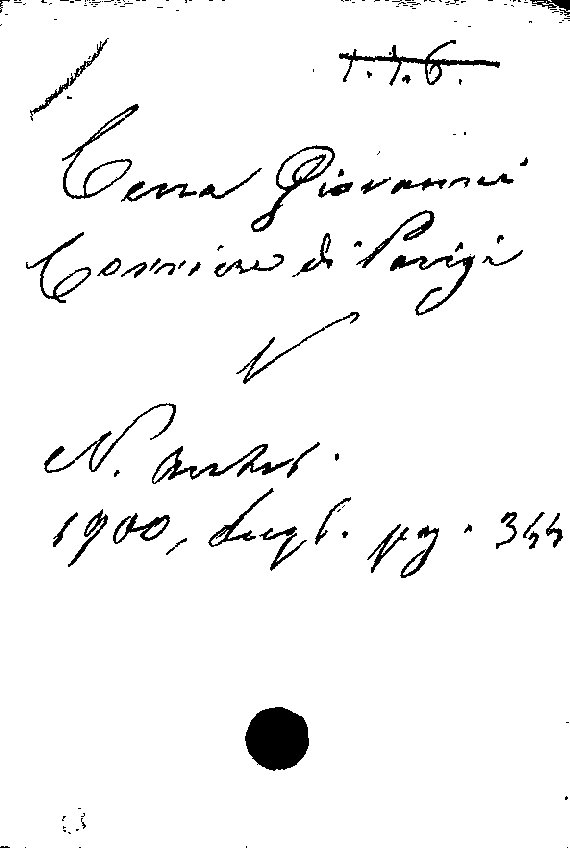 1.1.6.
Cena Giovanni
Corriere di Parigi
V
N. Antol.
1900, Lugl. pg. 344